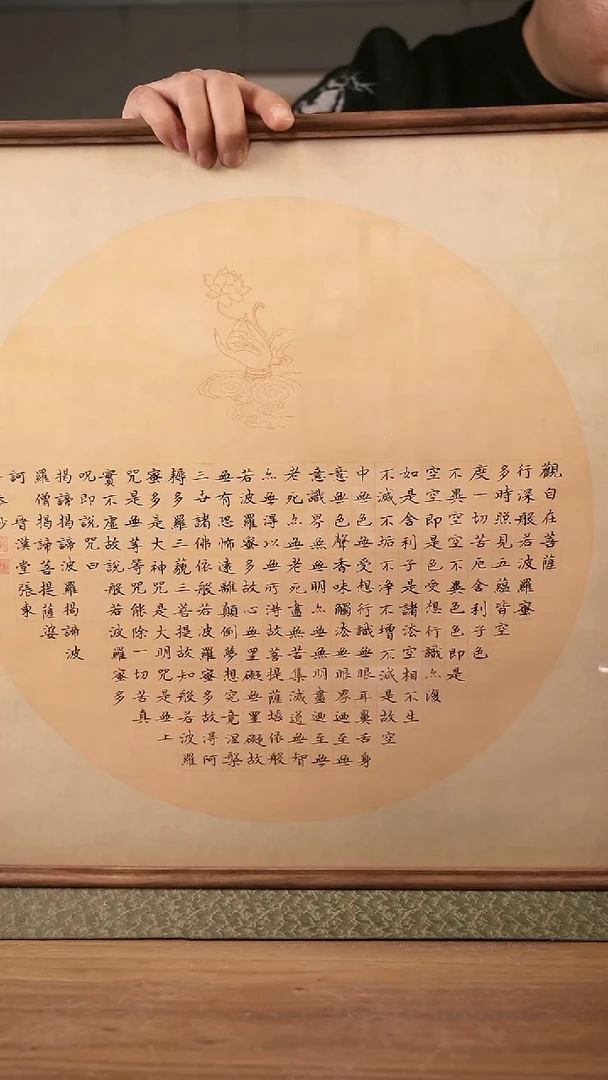 觀自在菩薩
行深般若波羅蜜
多時照見五蘊皆空
度一切苦厄舍利子色
不異空空不異色色即是
空空即是色受想行識亦復
如是舍利子是諸法空相不生
不滅不垢不淨不增不減是故空
中無色無受想行識無眼耳鼻舌身
意無色聲香味觸法無眼界乃至無
意識界無無明亦無無明盡乃至無
老死亦無老死盡無苦集滅道無智
亦無得以無所得故菩提薩埵依般
若波羅蜜多故心無罣礙無罣礙故
無有恐怖遠離顛倒夢想究竟涅槃
三世諸佛依般若波羅蜜多故得阿
耨多羅三藐三菩提故知般若波羅
蜜多是大神咒是大明咒是無上
咒是無等等咒能除一切苦真
實不虛故說般若波羅蜜多
咒即說咒曰
揭諦揭諦波羅揭諦波
羅僧揭諦菩提薩婆
訶
漢堂張東